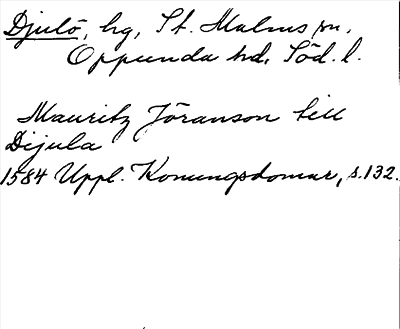 Djulö, hg, St. Malms sn,
Oppunda hd, Söd. l.
Mauritz Jöranson till
Dijula
1584 Uppl. Konungsdomar, s. 132.